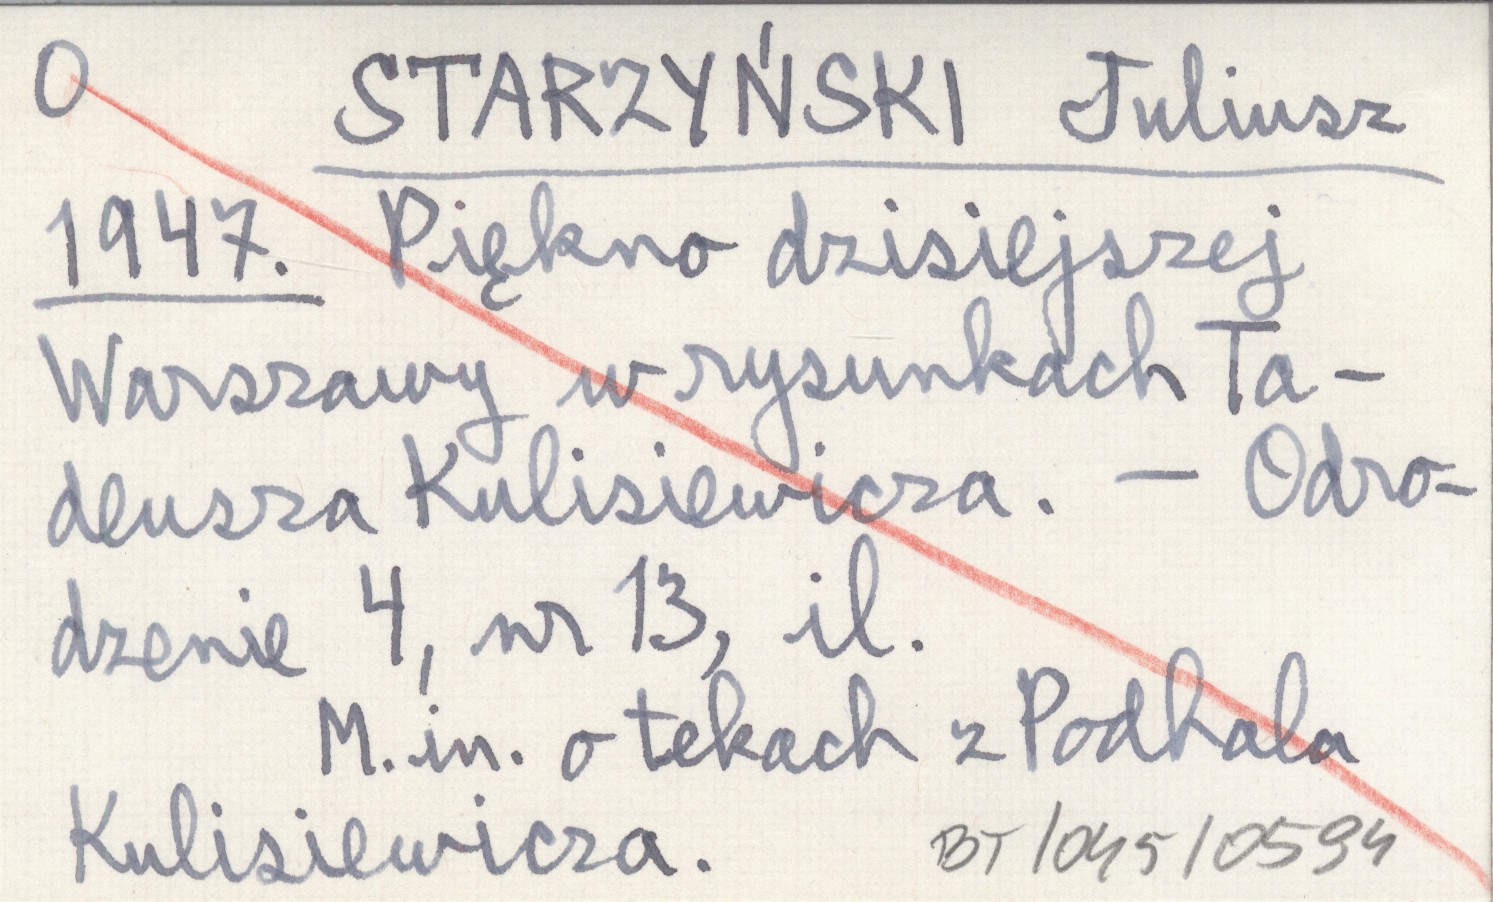 O STARZYŃSKI Juliusz
1947. Piękno dzisiejszej
Warszawy w rysunkach Ta-
deusza Kulisiewicza. — Odro-
dzenie 4, nr 13, il.
M. in. o tekach z Podhala
Kulisiewicza.
BT/045/0594